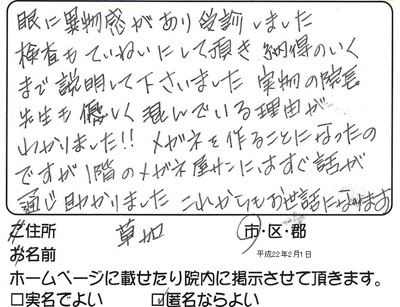 眼に異物感があり受診しました
検査もていねいにして頂き納得のいく
まで説明して下さいました 実物の院長
先生も優しく混んでいる理由が
わかりました!! メガネを作ることになったの
ですが1階のメガネ屋サンにはすぐ話が
通じ助かりました これからもお世話になります
ご住所 草加 市・区・郡
お名前 平成22年2月1日
ホームページに載せたり院内に掲示させて頂きます。
□実名でよい ☑匿名ならよい